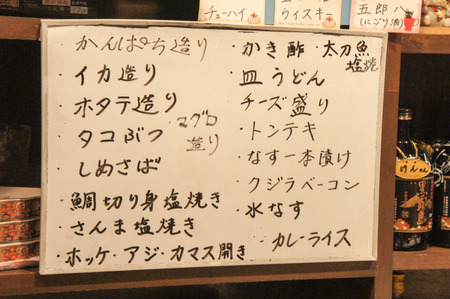 チューハイ
ウイスキー
五郎八
(にごり酒)
かんぱち造り
・イカ造り
・ホタテ造り
・タコぶつ
・マグロ
造り
・しめさば
・鯛切り身塩焼き
・さんま塩焼き
・ホッケ・アジ・カマス開き
・かき酢・太刀魚
塩焼
・皿うどん
・チーズ盛り
・トンテキ
・なす一本漬け
・クジラベーコン
・水なす
・カレーライス